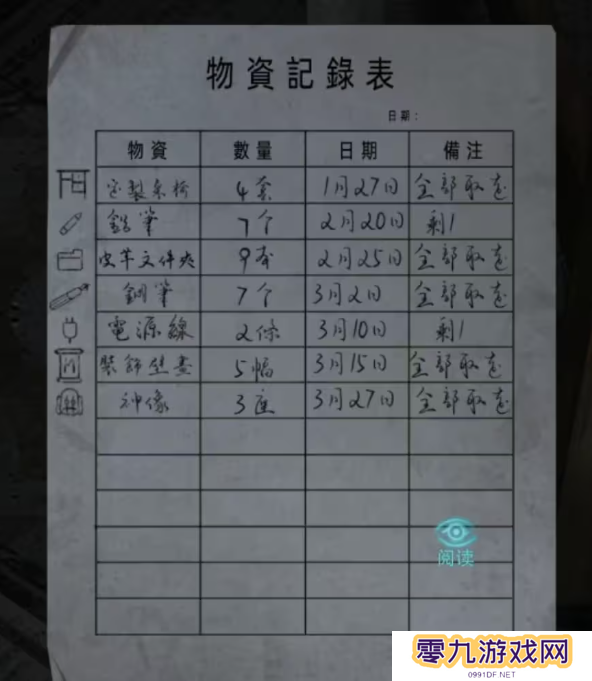 物資記錄表
日期：
物資 數量 日期 備注
定製桌椅 4套 1月27日 全部取走
鉛筆 7个 2月20日 剩1
皮革文件夾 9本 2月25日 全部取走
鋼筆 7个 3月2日 全部取走
電源線 2條 3月10日 剩1
裝飾壁畫 5幅 3月15日 全部取走
神像 3座 3月27日 全部取走
阅读
零九游戏网
0991DF.NET